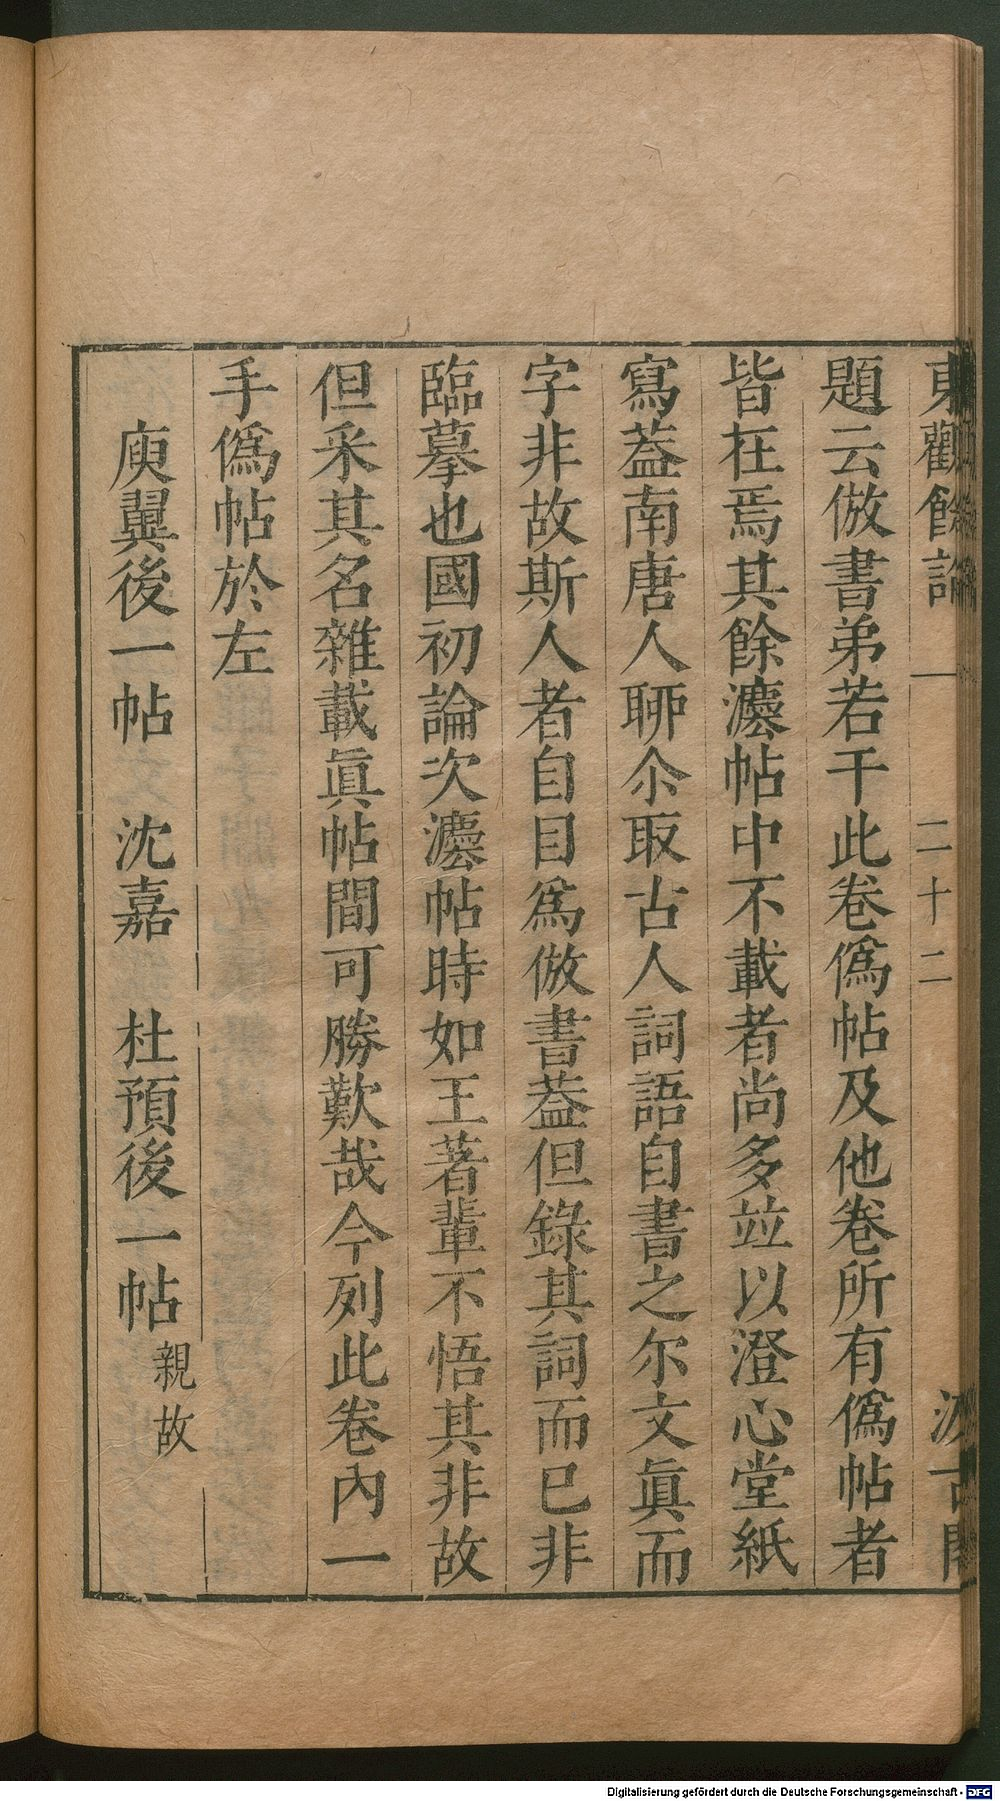 東觀餘論 一 二十二 汲古閣
題云倣書弟若干此卷僞帖及他卷所有僞帖者
皆在焉其餘灋帖中不載者尚多竝以澄心堂紙
寫葢南唐人聊尒取古人詞語自書之尔文眞而
字非故斯人者自目爲倣書葢但錄其詞而已非
臨摹也國初論次灋帖時如王著輩不悟其非故
但采其名雜載眞帖間可勝歎哉今列此卷內一
手僞帖於左
庾翼後一帖 沈嘉 杜預後一帖親故
Digitalisierung gefördert durch die Deutsche Forschungsgemeinschaft - DFG